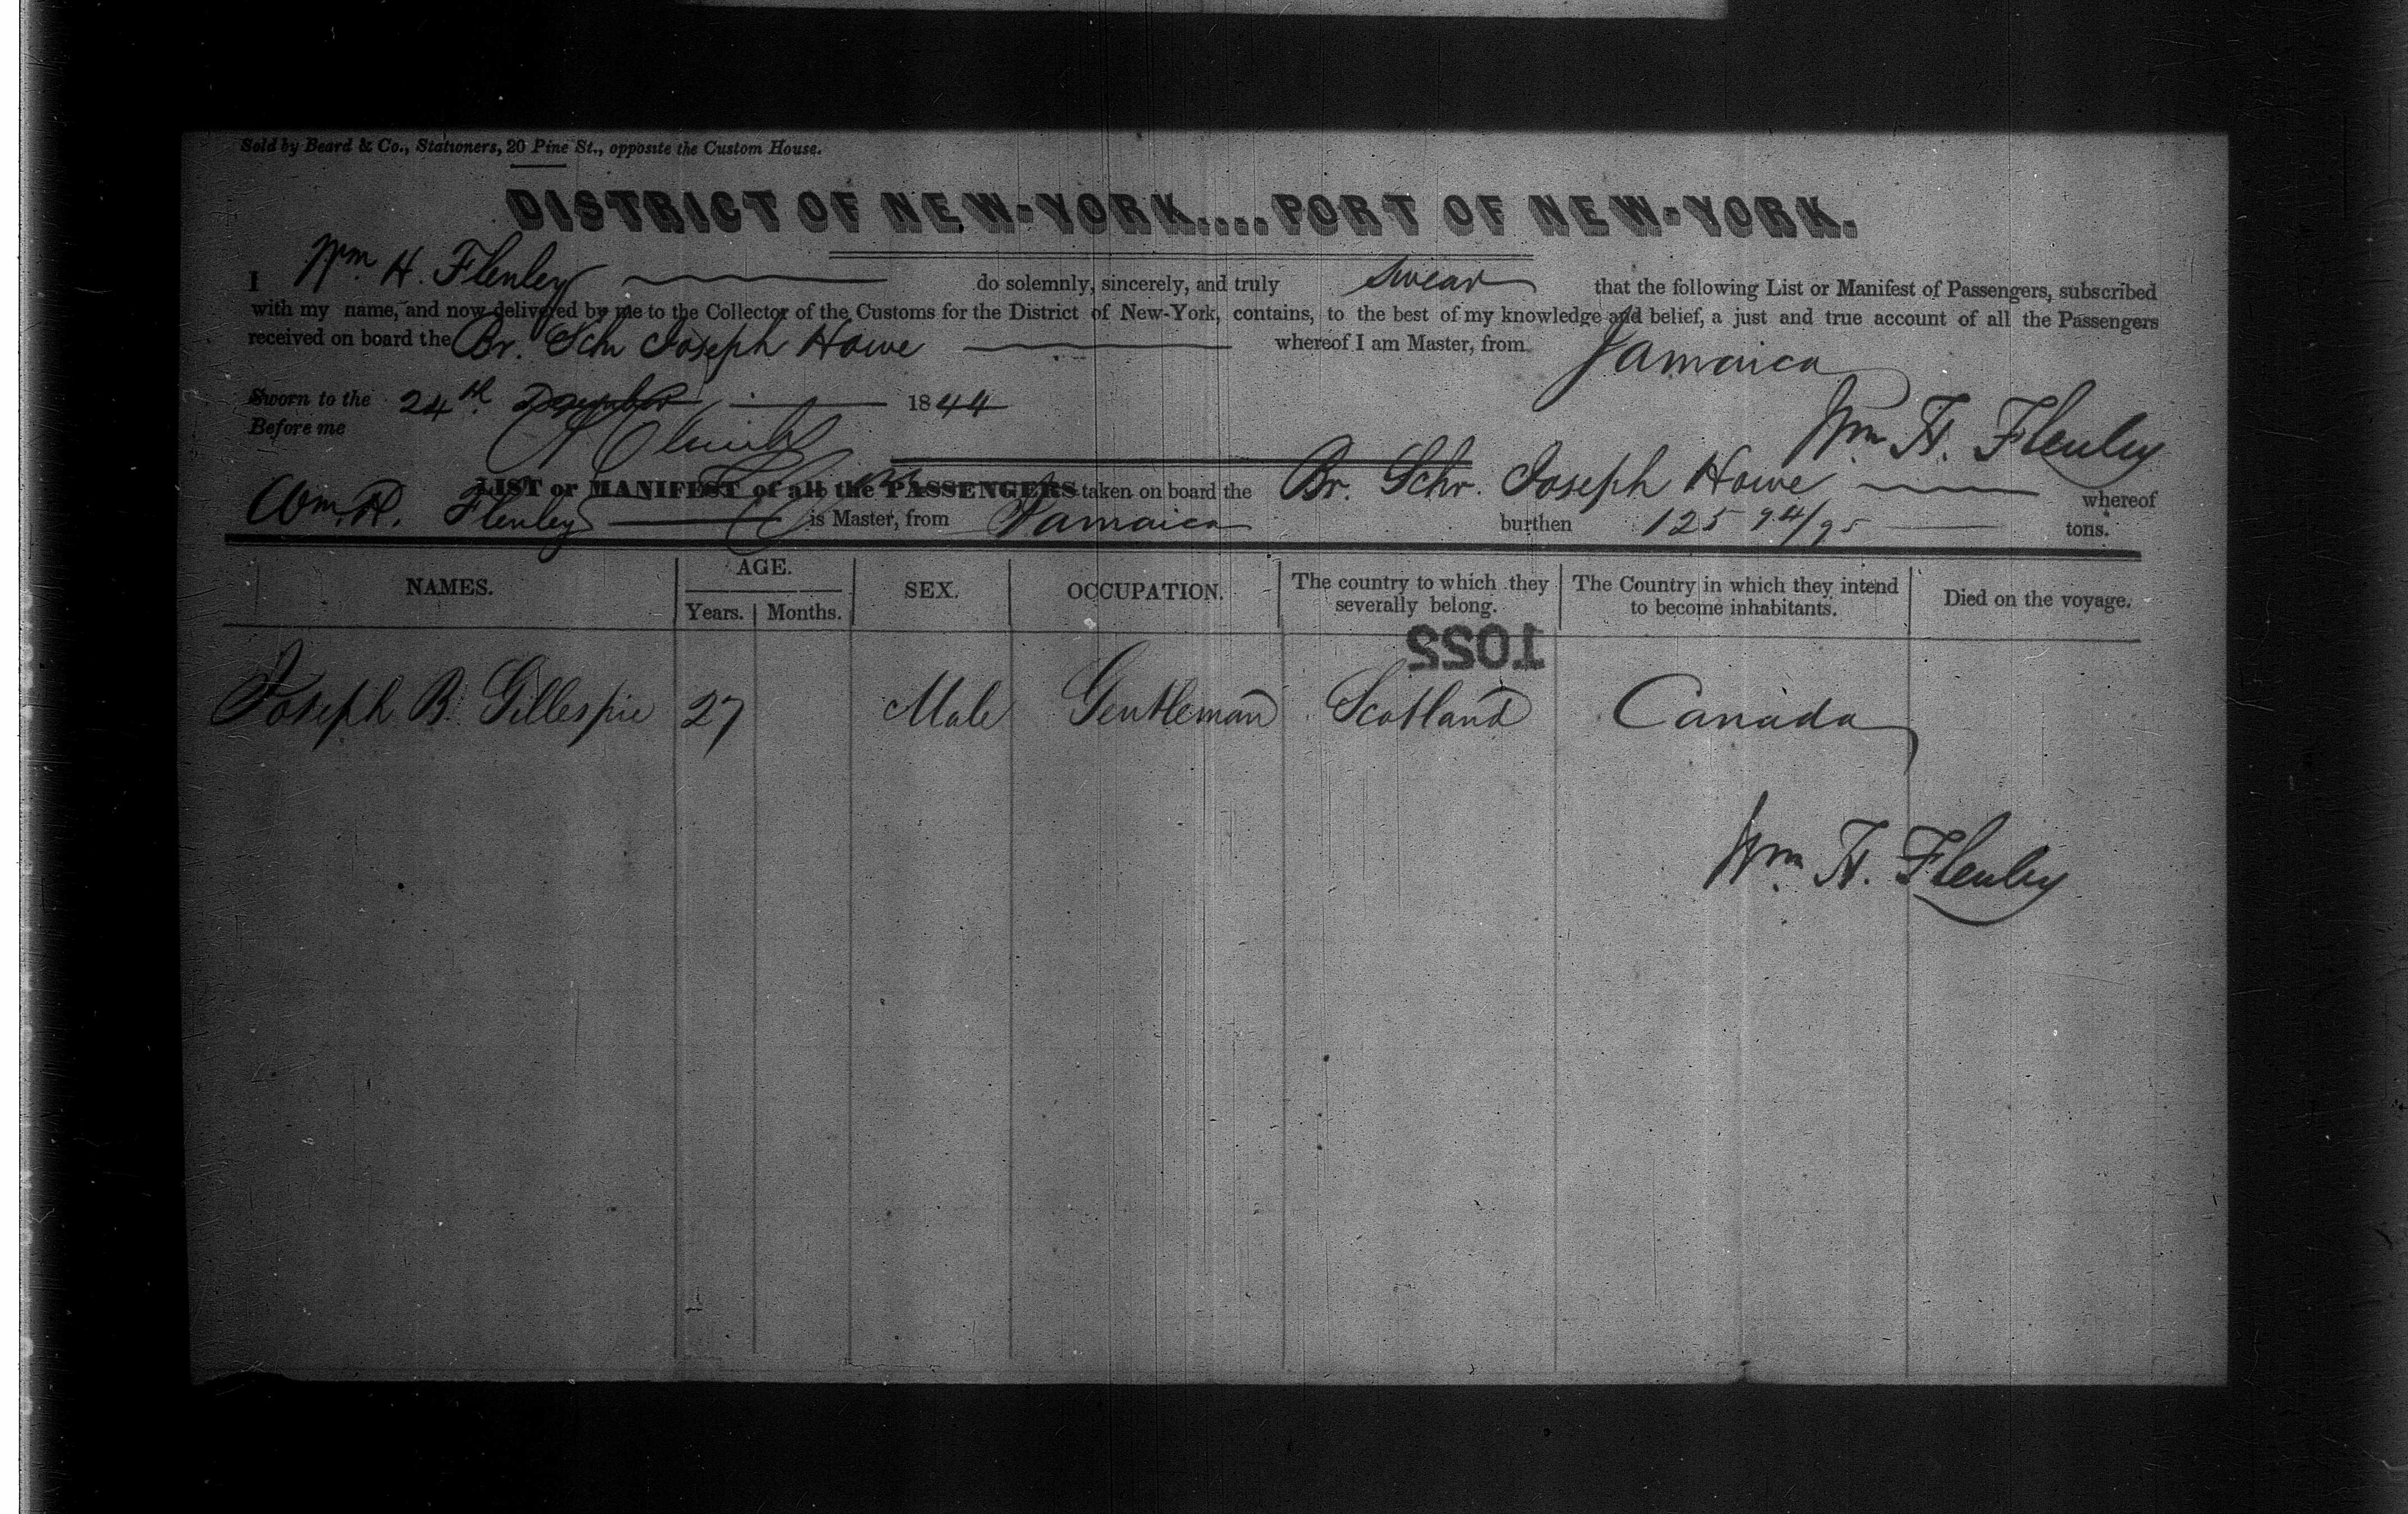 Sold by Beard & Co., Stationers, 20 Pine St., opposite the Custom House.
DISTRICT OF NEW-YORK....PORT OF NEW-YORK.
I Wm H. Flenley do solemnly, sincerely, and truly swear that the following List or Manifest of Passengers, subscribed
with my name, and now delivered by me to the Collector of the Customs for the District of New-York, contains, to the best of my knowledge and belief, a just and true account of all the Passengers
received on board the Br. Schr Joseph Howe whereof I am Master, from Jamaica
Sworn to the 24th December 1844
Before me
Wm H. Flenley
LIST or MANIFEST of all the PASSENGERS taken on board the Br. Schr. Joseph Howe, whereof
Wm. H. Flenley is Master, from Jamaica burthen 125 94/95 tons.
NAMES. AGE. Years. Months. SEX. OCCUPATION. The country to which they severally belong. The Country in which they intend to become inhabitants. Died on the voyage.
1022
Joseph B. Gillespie 27 Male Gentleman Scotland Canada
Wm H. Flenley